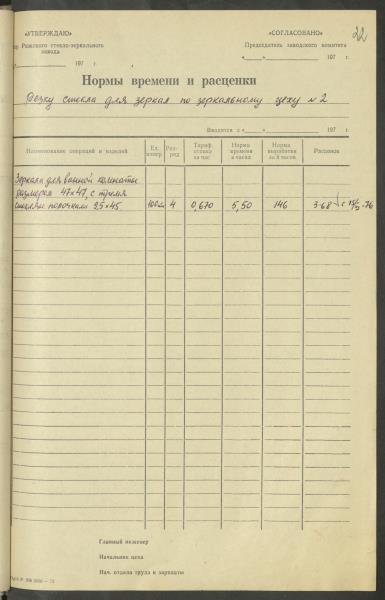 22
«УТВЕРЖДАЮ»
«СОГЛАСОВАНО»
Рижского стекло-зеркального
завода
Председатель заводского комитета
197 г.
«___» 197 г.
Нормы времени и расценки
Резку стекла для зеркал по зеркальному цеху №2
Вводится с «___» 197 г.
Наименование операций и изделий
Ед. измер.
Раз-ряд
Тариф. ставка за час
Норма времени в часах
Норма выработки за 8 часов
Расценки
Зеркала для ванной комнаты
размером 47×47, с тремя
100 4 0,670 5,50 146 3-68 с -76
Главный инженер
Начальник цеха
Нач. отдела труда и зарплаты